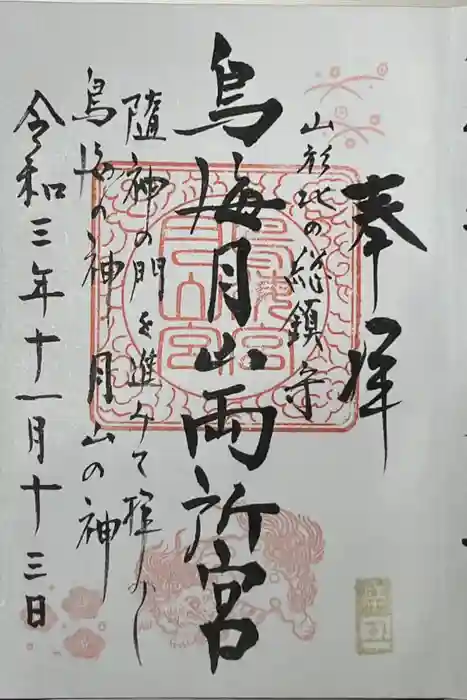 奉拝
山形北の総鎮守
鳥海月山両所宮
随神の門を進みて拝めし
鳥海の神 月山の神
令和三年十一月十三日